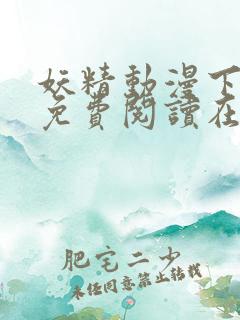 妖精動漫下
免費閱讀在
肥宅二少
未任同意禁止转载